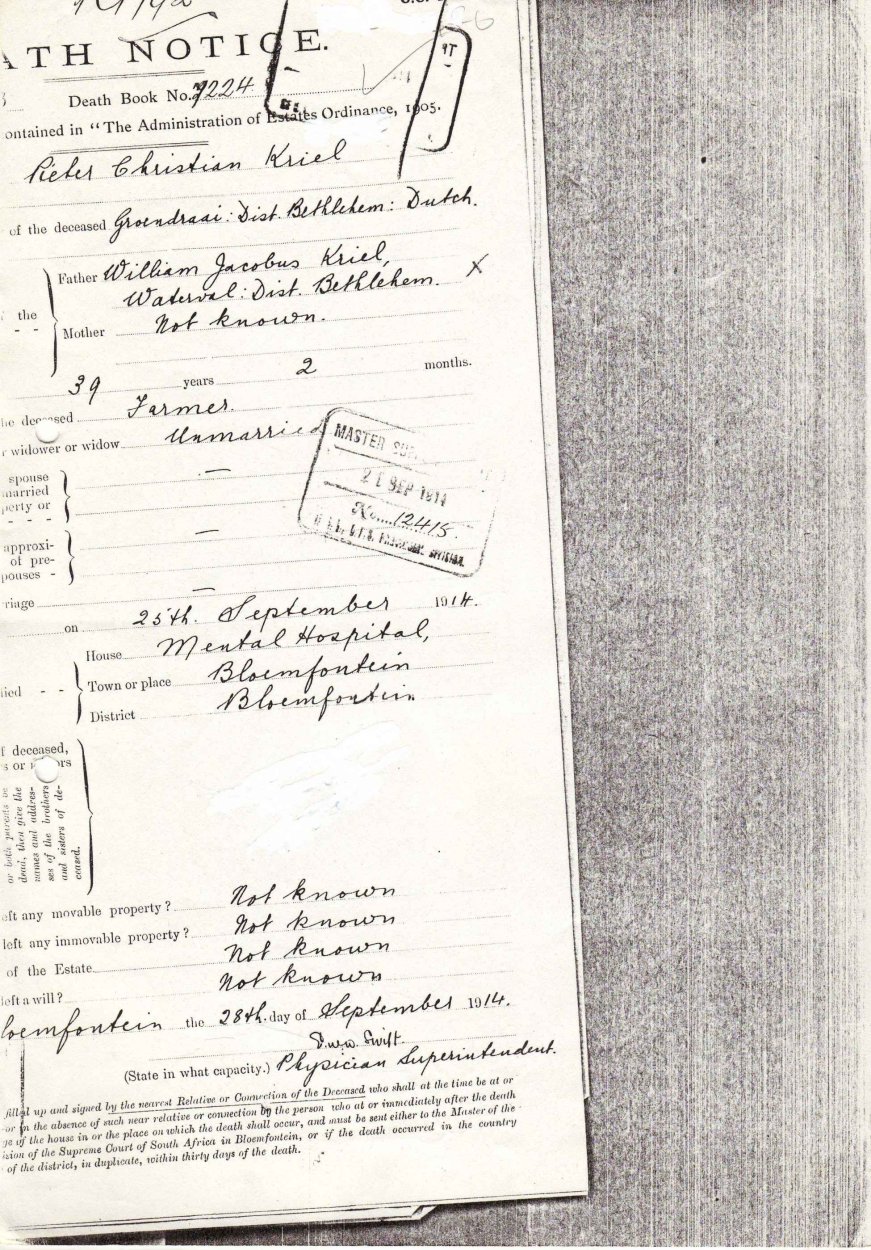 ATH NOTICE.
Death Book No. 7224
ontained in "The Administration of Estates Ordinance, 1905.
Pieter Christian Kriel
of the deceased Groendraai: Dist. Bethlehem: Dutch.
Father William Jacobus Kriel,
Waterval: Dist. Bethlehem. X
the
Mother Not known.
39 years 2 months.
he deceased Farmer.
r widower or widow Unmarried
MASTER
21 SEP 1914
No. 12415
spouse
married
perty or
approxi-
of pre-
pouses -
riage
on 25th. September 1914.
House Mental Hospital,
died - - Town or place Bloemfontein
District Bloemfontein
f deceased,
s or
or both parents be
dead, then give the
names and addres-
ses of the brothers
and sisters of de-
ceased.
eft any movable property? Not known
left any immovable property? Not known
of the Estate Not known
left a will? Not known
loemfontein the 28th. day of September 1914.
Swift.
(State in what capacity.) Physician Superintendent.
filled up and signed by the nearest Relative or Connection of the Deceased who shall at the time be at or
or in the absence of such near relative or connection by the person who at or immediately after the death
ge of the house in or the place on which the death shall occur, and must be sent either to the Master of the
ision of the Supreme Court of South Africa in Bloemfontein, or if the death occurred in the country
of the district, in duplicate, within thirty days of the death.